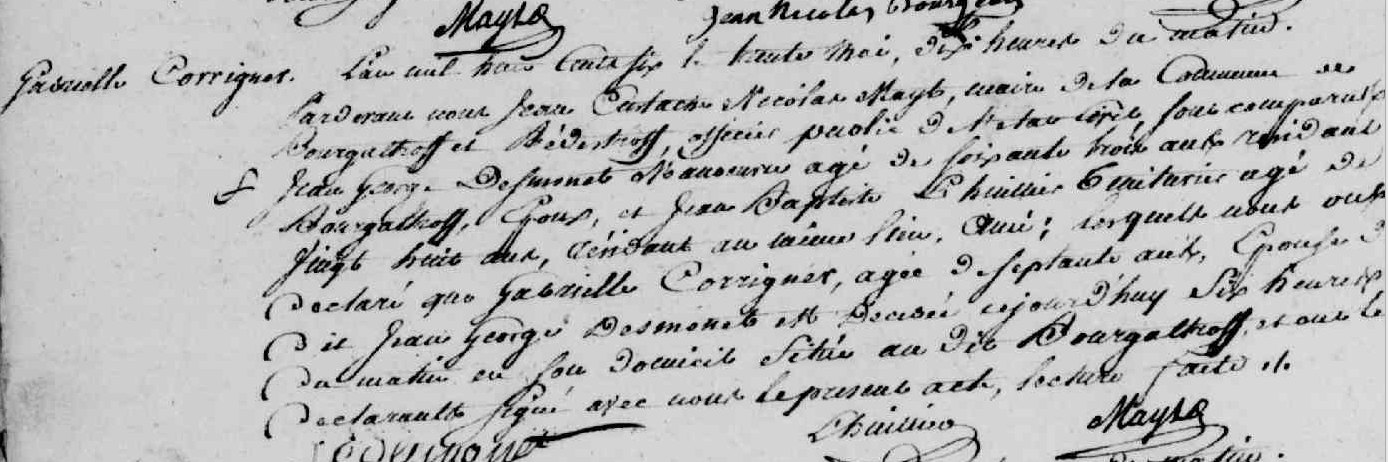 Mayté Jean Nicolas Bourgeois
Gabrielle Corrigner. L'an mil huit cents six le trente Mai, dix heures du matin.
Pardevant nous Jean Eustache Nicolas Mayté, maire de la Commune de
Bourgaltroff et Bédestroff, officier public de l'etat civil, sont comparus
Jean George Desmonet Manoeuvre agé de soixante trois ans residant
Bourgaltroff, Epoux, et Jean Baptiste Lhuillier agé de
Vingt huit ans, résidant au même lieu, Ami; lesquels nous ont
Declaré que Gabrielle Corrigner, agée de septante ans, Epouse d
Dit Jean George Desmonet est Decedée cejourd'huy Six heures
Du matin en son domicil Situé au dit Bourgaltroff, et ont le
Declarants signé avec nous le present acte, lecture faite
Lhuillier Mayté
matin.